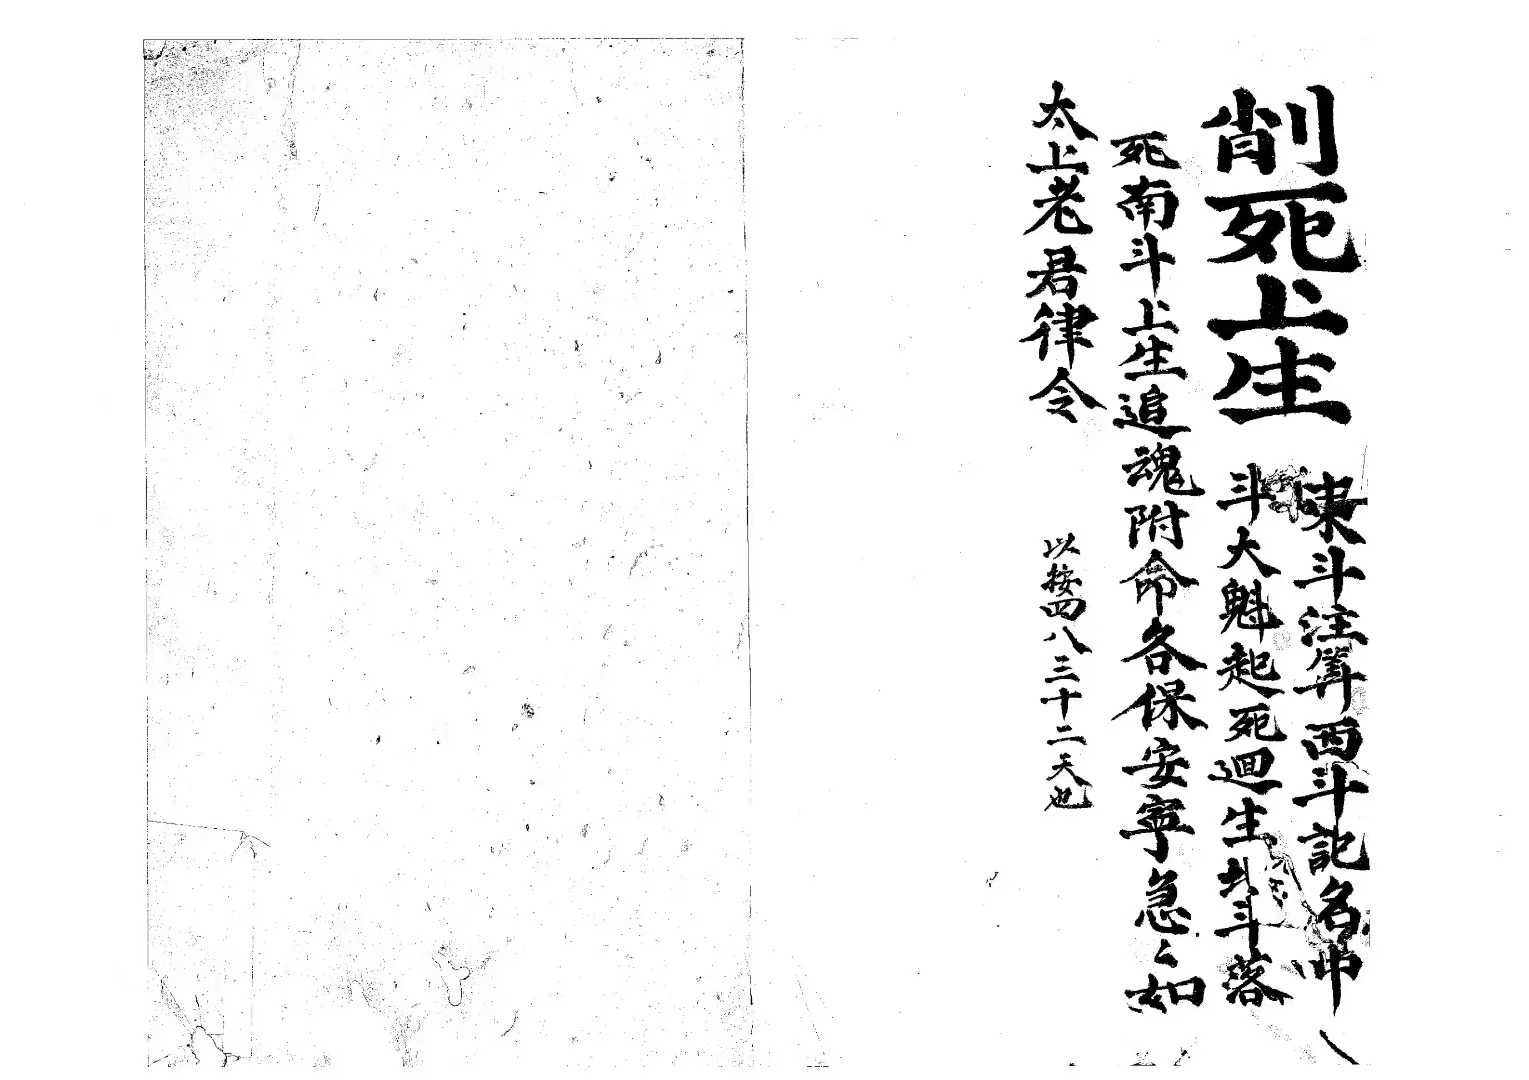 削死上生
東斗注筭西斗記名中
斗大魁起死迴生北斗落
死南斗上生追魂附命各保安寧急〻如
太上老君律令
以按四八三十二天也